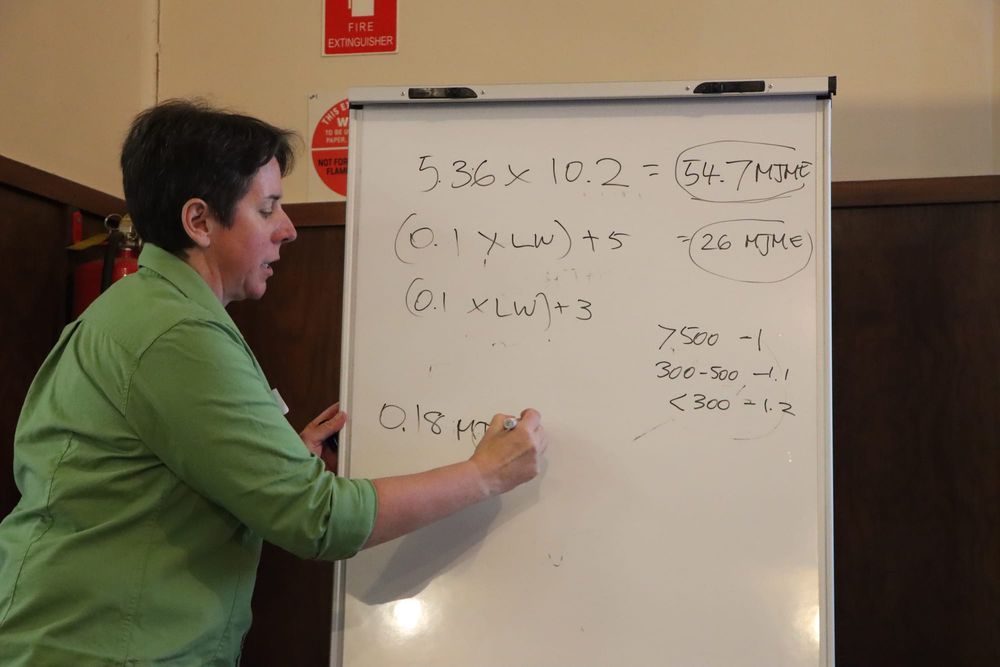 FIRE
EXTINGUISHER
THIS
TO BE
PAPER,
NOT FOR
FLAM
5.36 x 10.2 = 54.7 MJME
(0.1 x LW) + 5 = 26 MJME
(0.1 x LW) + 3
>500 - 1
300-500 - 1.1
<300 - 1.2
0.18 MJ